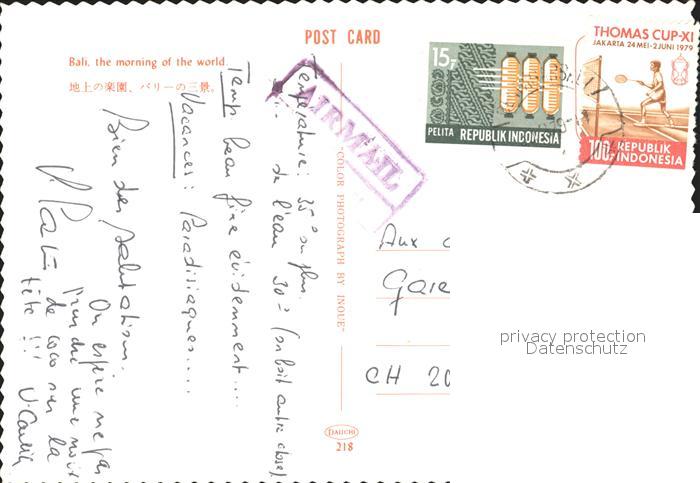 POST CARD
Bali, the morning of the world.
地上の楽園、バリーの三景。
Température: 35° ou plus.
de l'eau 30° (subit autre chose)
Temps beau fixe évidemment....
Vacances: Paradisiaques.....
Bien des salutations.
On espère ne pas
prendre une noix
de coco sur la
tête !!!
"COLOR PHOTOGRAPH BY INOUE"
DAIICHI
218
AIRMAIL
15,-
PELITA REPUBLIK INDONESIA
THOMAS CUP-XI
JAKARTA 24 MEI-2 JUNI 1979
100,- REPUBLIK
INDONESIA
Aux
Gare
CH 20
privacy protection
Datenschutz